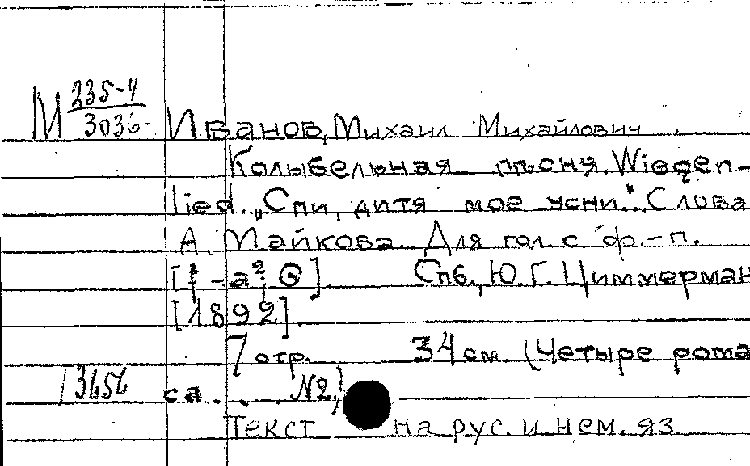 М 235-4/3036 Иванов, Михаил Михайлович.
Колыбельная песня. Wiegen-
lied. „Спи, дитя мое усни". Слова
А. Майкова Для гол. с ф.-п.
Спб., Ю.Г. Циммерман
[1892].
7 стр. 34 см. (Четыре рома
са. . . . №2)
Текст на рус. и нем. яз